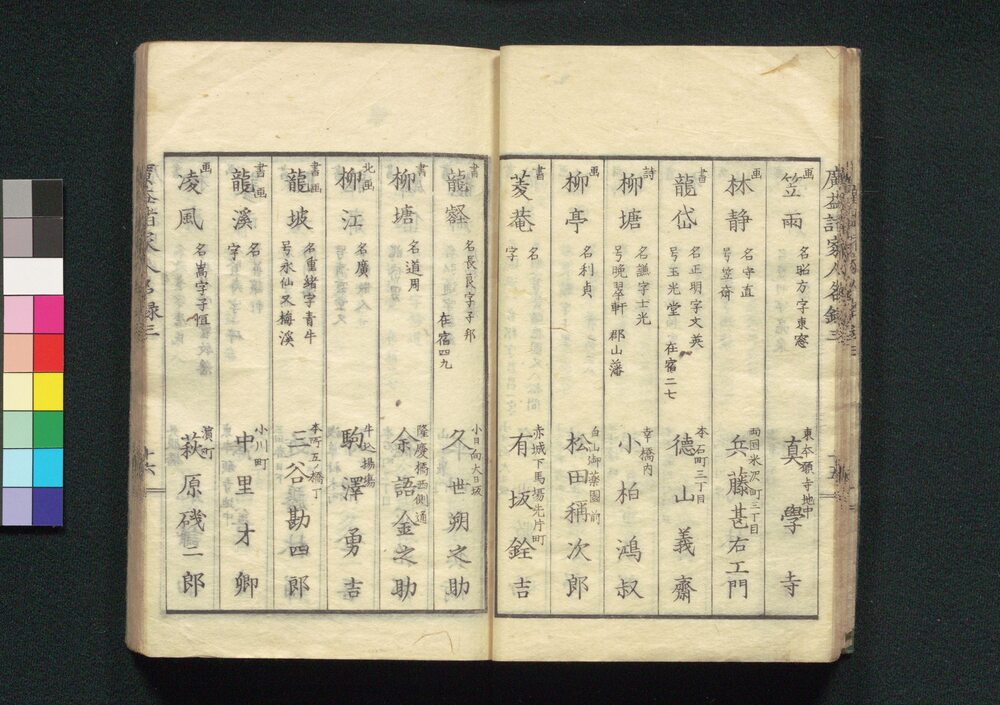 画 笠雨 名昭方字東窓 東本願寺地中 真學寺
画 林静 名守直 号笠斎 両国米沢町三丁目 兵藤甚右エ門
書 龍岱 名正明字文英 号玉光堂 在宿二七 本石町三丁目 德山義齋
詩 柳塘 名謙字士光 号晩翠軒 郡山藩 幸橋内 小柏鴻叔
画 柳亭 名利貞 白山御薬園前 松田稱次郎
書 菱菴 名 字 赤城下馬場先片町 有坂銓吉
書 龍 名長良字子邦 在宿四九 小日向大日坂 久世朔之助
書 柳塘 名道用 隆慶橋西側通 余語金之助
北画 柳江 名廣 牛込揚場 駒澤勇吉
書画 龍坡 名重緒字青牛 号水仙又梅溪 本所五ノ橋丁 三谷勘四郎
書画 龍溪 名 字 小川町 中里才卿
画 凌風 名嵩字子恒 濱町 萩原磯二郎
廣益諸家人名録三 十六